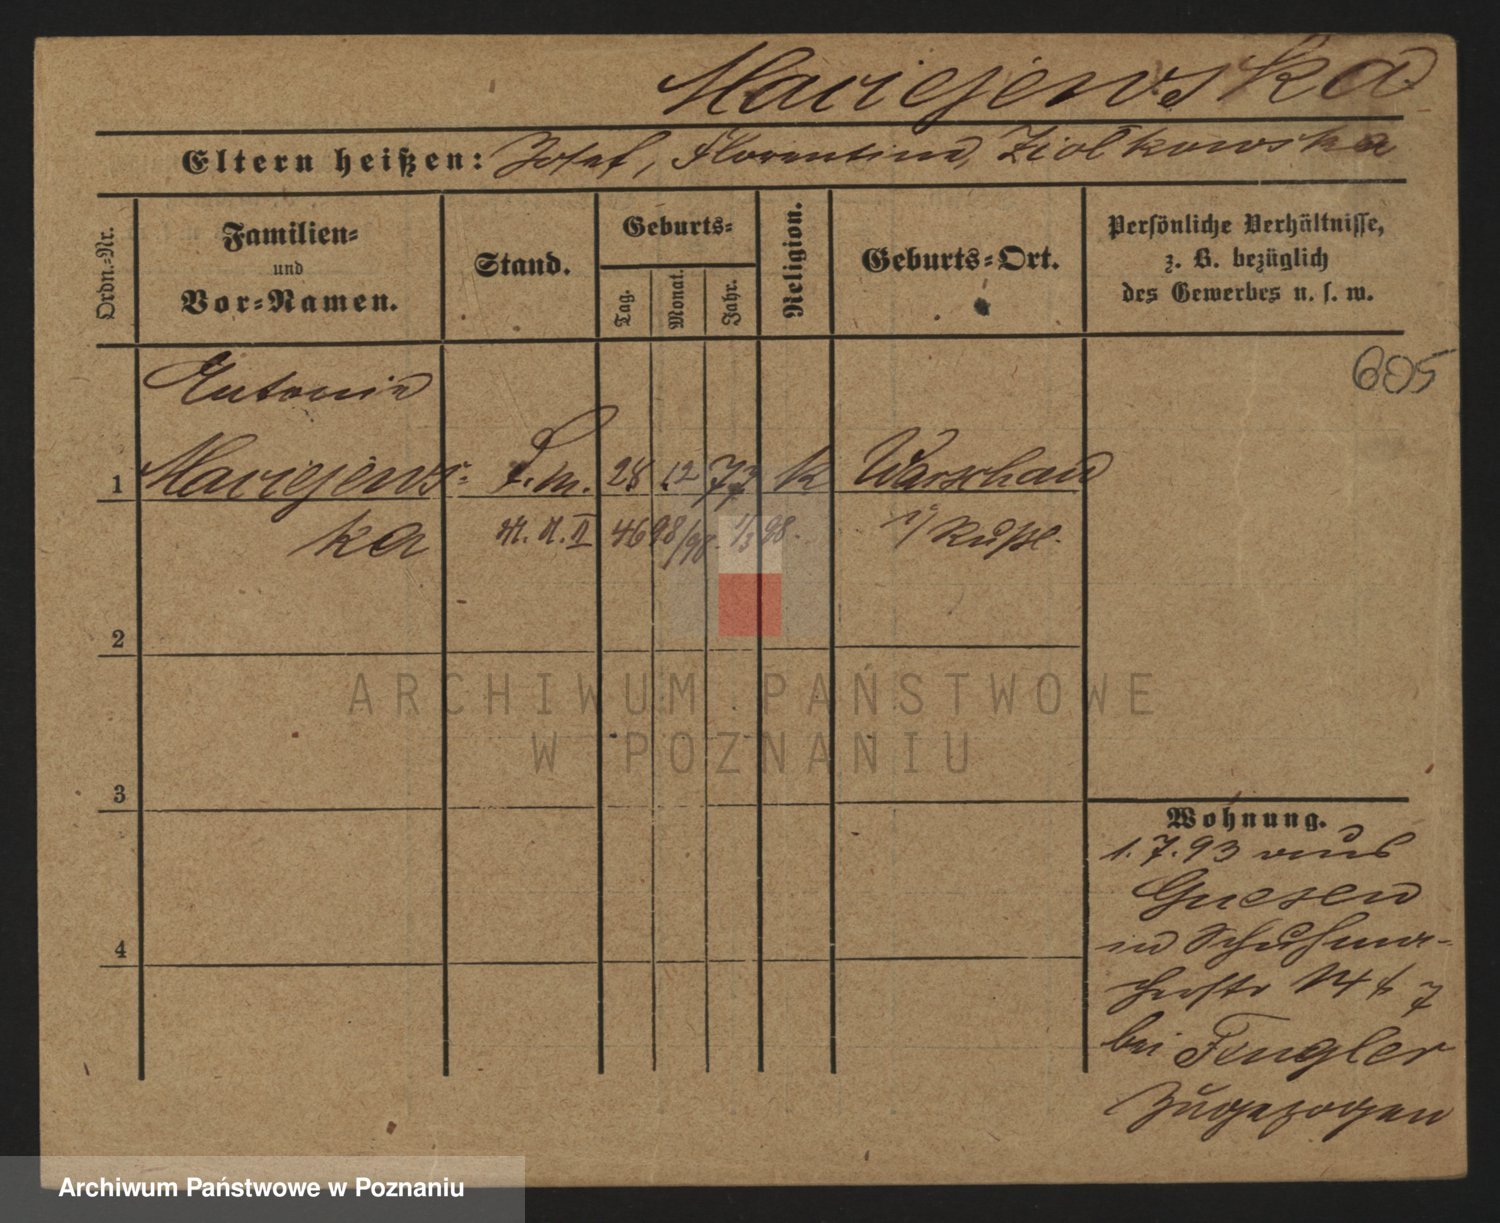 Maciejewska
Eltern heißen: Josef, Florentine, Ziolkowska
Ordn.=Nr.
Familien=
und
Vor=Namen.
Stand.
Geburts=
Tag.
Monat.
Jahr.
Religion.
Geburts=Ort.
Persönliche Verhältnisse,
z. B. bezüglich
des Gewerbes u. s. w.
605
Antonie
1 Maciejews= 28 12 77 k Warschau
ka i/ Rußl.
2
3
4
Wohnung.
1.7.93 aus
Gnesen
in Schuhma-
cherstr 14 7
bei Fengler
zugezogen
ARCHIWUM PAŃSTWOWE
W POZNANIU
Archiwum Państwowe w Poznaniu